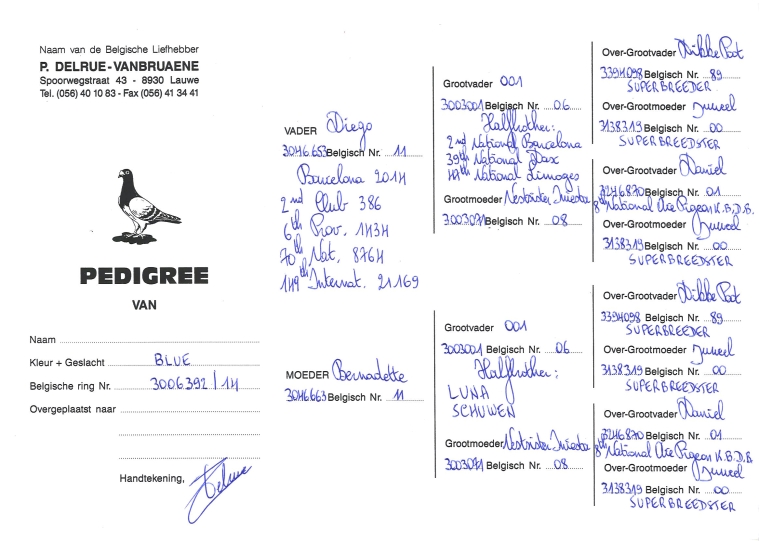 Naam van de Belgische Liefhebber
P. DELRUE-VANBRUAENE
Spoorwegstraat 43 - 8930 Lauwe
Tel. (056) 40 10 83 - Fax (056) 41 34 41
PEDIGREE
VAN
Naam
Kleur + Geslacht BLUE
Belgische ring Nr. 3006392/14
Overgeplaatst naar
Handtekening, Delrue
VADER Diego
3046653 Belgisch Nr. 11
Barcelona 2014
2nd Club 386
6th Prov. 1434
70th Nat. 8764
149th Internat. 21169
MOEDER Bernadette
3046663 Belgisch Nr. 11
Grootvader 001
3003001 Belgisch Nr. 06
Halfbrother:
2nd National Barcelona
39th National Dax
47th National Limoges
Grootmoeder Nestzuster
3003071 Belgisch Nr. 08
Grootvader 001
3003001 Belgisch Nr. 06
Halfbrother:
LUNA
SCHUWEN
Grootmoeder Nestzuster
3003071 Belgisch Nr. 08
Over-Grootvader Dikke Poot
3394098 Belgisch Nr. 89
SUPERBREEDER
Over-Grootmoeder Juweel
3138319 Belgisch Nr. 00
SUPERBREEDSTER
Over-Grootvader Daniel
3246870 Belgisch Nr. 01
8th National Ace Pigeon K.B.D.B.
Over-Grootmoeder Juweel
3138319 Belgisch Nr. 00
SUPERBREEDSTER
Over-Grootvader Dikke Poot
3394098 Belgisch Nr. 89
SUPERBREEDER
Over-Grootmoeder Juweel
3138319 Belgisch Nr. 00
SUPERBREEDSTER
Over-Grootvader Daniel
3246870 Belgisch Nr. 01
8th National Ace Pigeon K.B.D.B.
Over-Grootmoeder Juweel
3138319 Belgisch Nr. 00
SUPERBREEDSTER